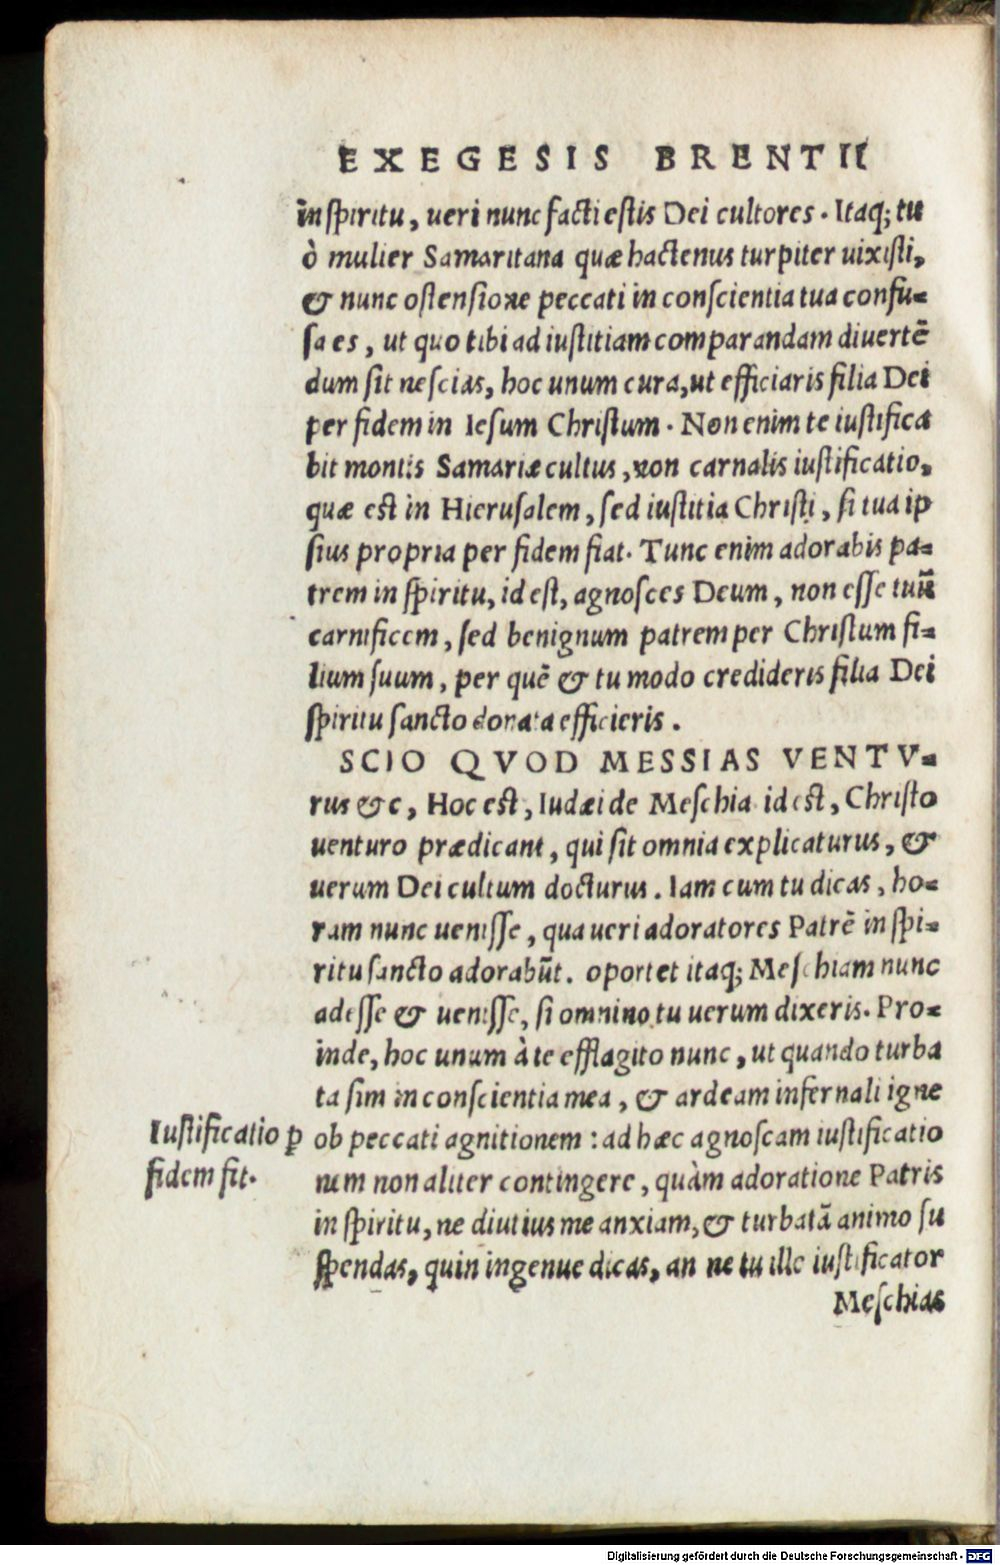 EXEGESIS BRENTII
in ſpiritu, ueri nunc facti eſtis Dei cultores. Itaq; tu
ò mulier Samaritana quæ hactenus turpiter uixiſti,
& nunc oſtenſione peccati in conſcientia tua confu-
ſa es, ut quo tibi ad iuſtitiam comparandam diuertē
dum ſit neſcias, hoc unum cura, ut efficiaris filia Dei
per fidem in Ieſum Chriſtum. Non enim te iuſtifica
bit montis Samariæ cultus, non carnalis iuſtificatio,
quæ eſt in Hieruſalem, ſed iuſtitia Chriſti, ſi tua ip
ſius propria per fidem fiat. Tunc enim adorabis pa-
trem in ſpiritu, id eſt, agnoſces Deum, non eſſe tuū
carnificem, ſed benignum patrem per Chriſtum fi-
lium ſuum, per quē & tu modo credideris filia Dei
ſpiritu ſancto donata efficieris.
SCIO QVOD MESSIAS VENTV-
rus &c, Hoc eſt, Iudæi de Meſchia id eſt, Chriſto
uenturo prædicant, qui ſit omnia explicaturus, &
uerum Dei cultum docturus. Iam cum tu dicas, ho-
ram nunc ueniſſe, qua ueri adoratores Patrē in ſpi-
ritu ſancto adorabūt. oportet itaq; Meſchiam nunc
adeſſe & ueniſſe, ſi omnino tu uerum dixeris. Pro-
inde, hoc unum à te efflagito nunc, ut quando turba
ta ſim in conſcientia mea, & ardeam infernali igne
Iuſtificatio ꝑ
fidem fit.
ob peccati agnitionem : ad hæc agnoſcam iuſtificatio
nem non aliter contingere, quàm adoratione Patris
in ſpiritu, ne diutius me anxiam, & turbatā animo ſu
ſpendas, quin ingenue dicas, an ne tu ille iuſtificator
Meſchias
Digitalisierung gefördert durch die Deutsche Forschungsgemeinschaft - DFG